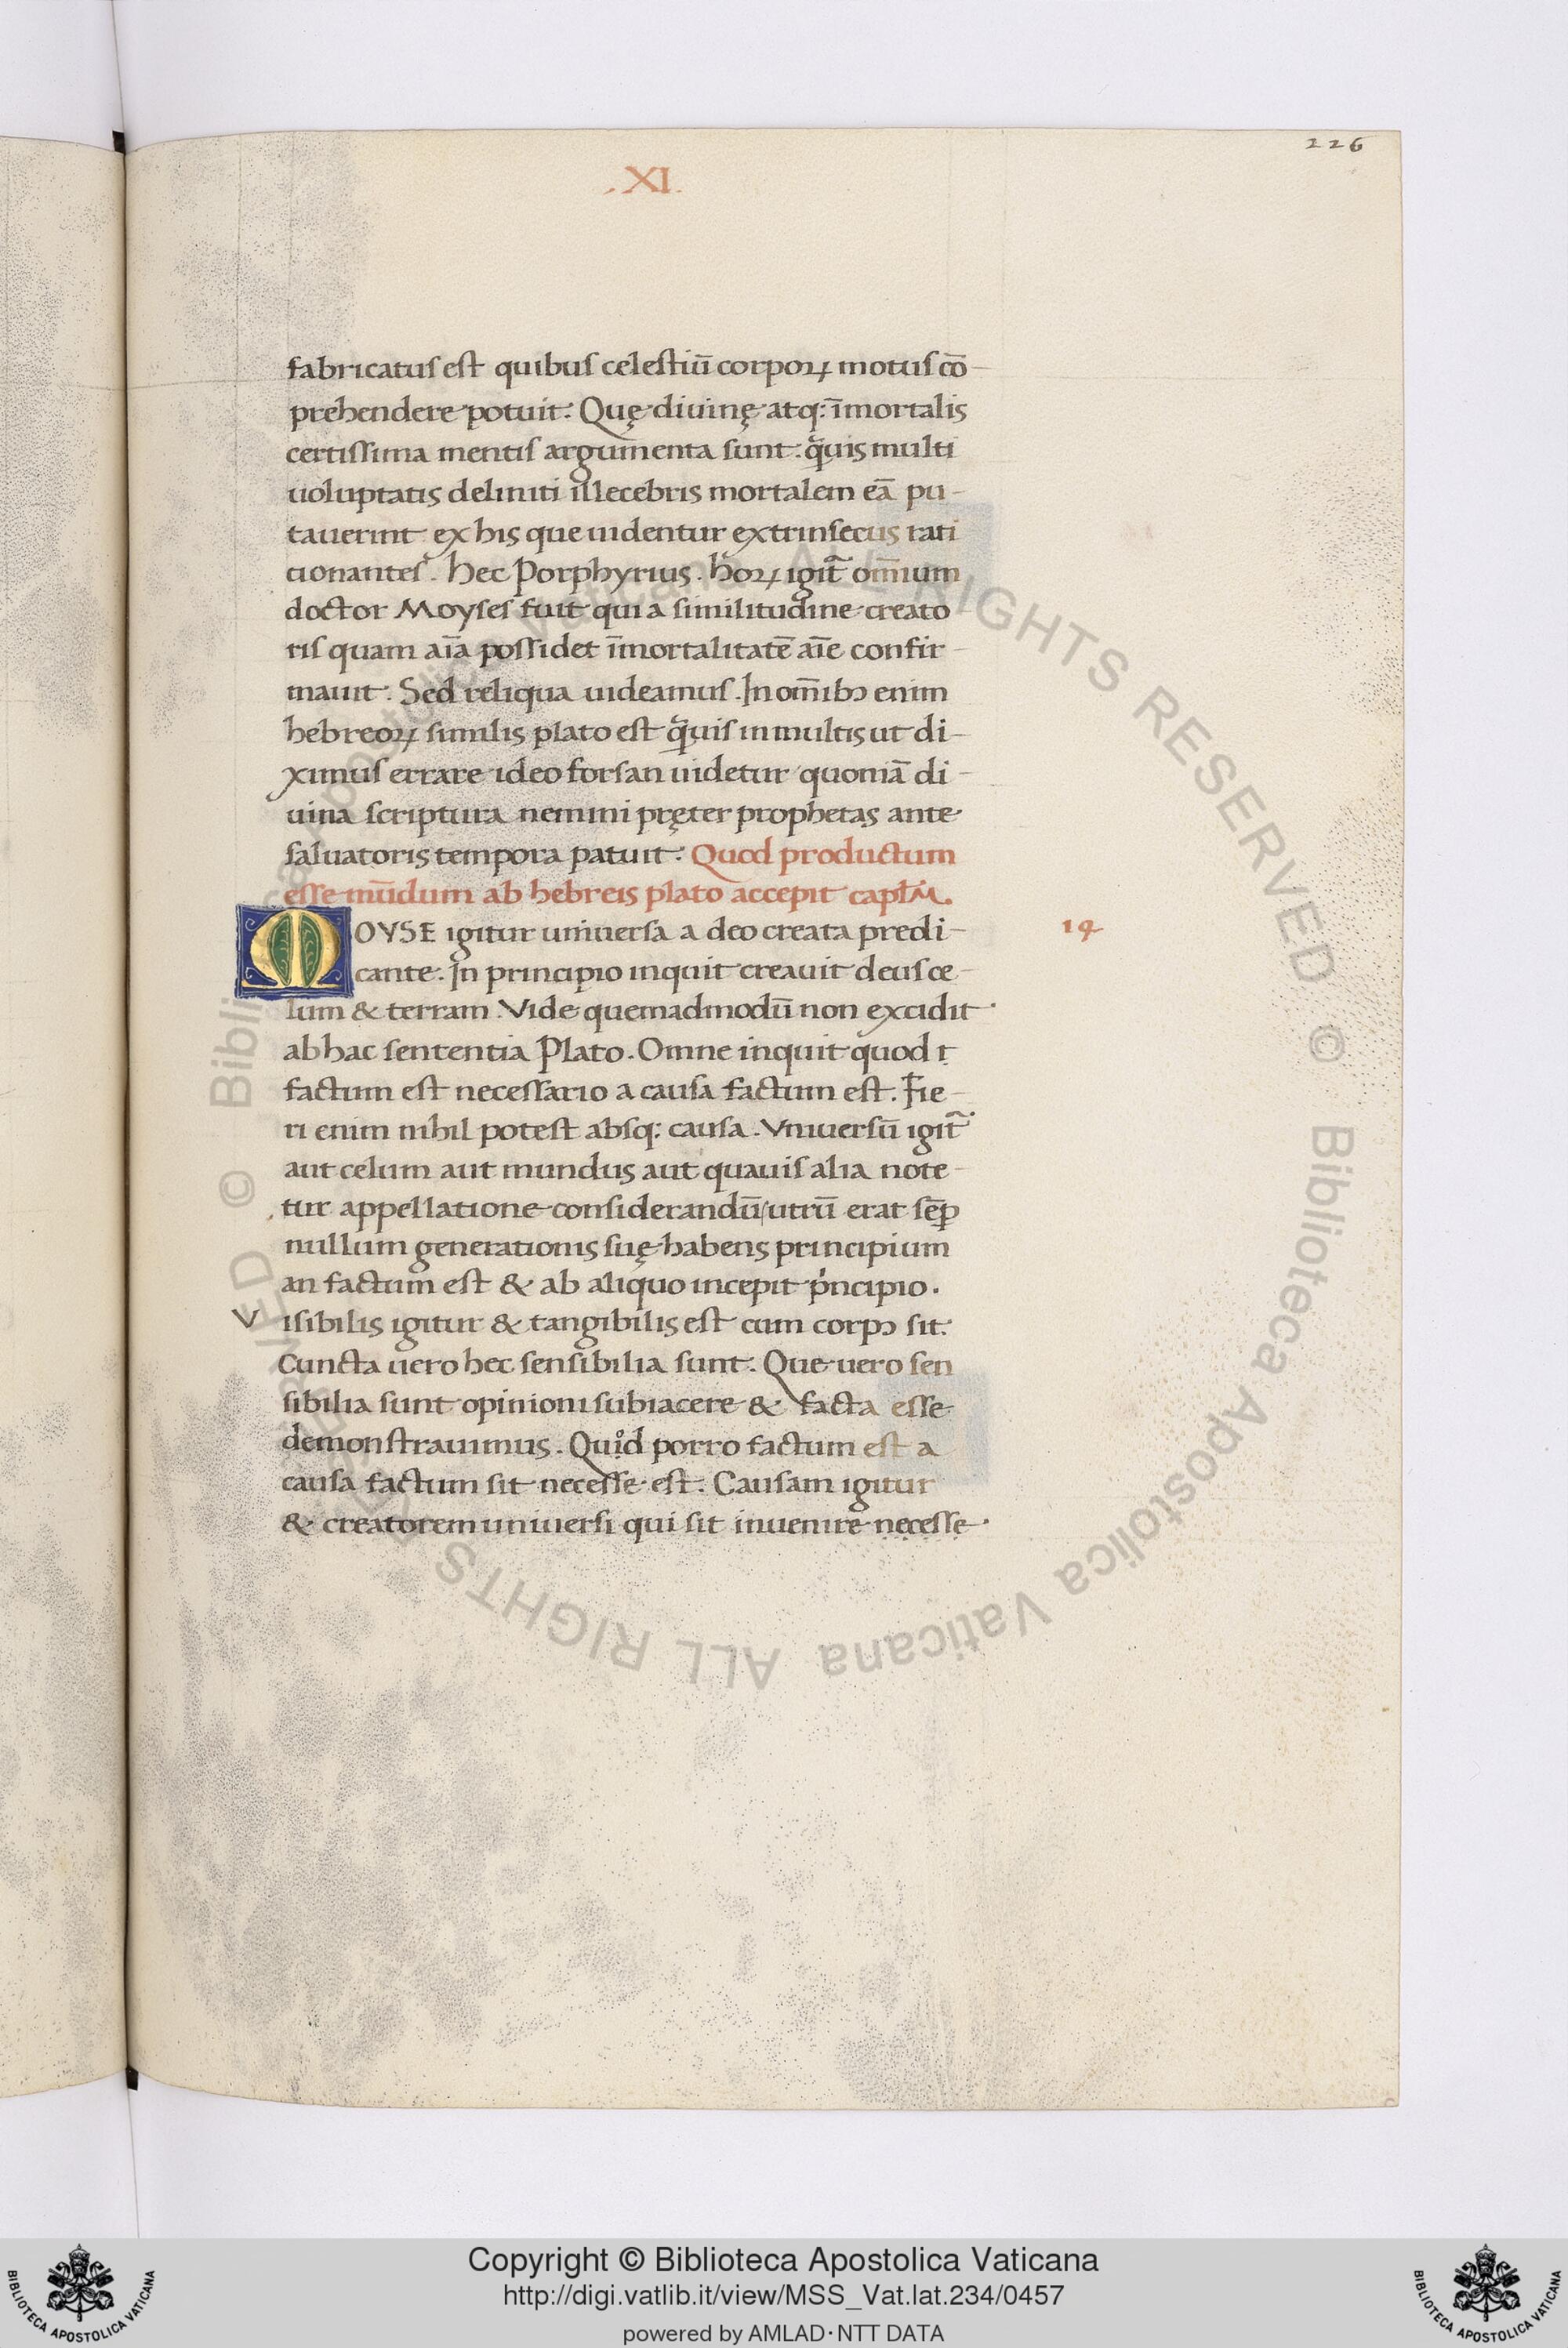 226
.XI.
fabricatus est quibus celestiū corpoꝝ motus cō-
prehendere potuit: Quę divinę atq: īmortalis
certissima mentis argumenta sunt: q̃uis multi
uoluptatis deliniti illecebris mortalem eā pu-
tauerint ex his que uidentur extrinsecus rati
cionantes. hec Porphyrius. hoꝝ igit̃ om̄ium
doctor Moyses fuit qui a similitudine creato
ris quam aīa possidet īmortalitatē aīe confir-
mauit: Sed reliqua uideamus. In om̄ibꝰ enim
hebreoꝝ similis plato est q̃uis in multis ut di-
ximus errare ideo forsan uidetur quoniā di-
uina scriptura nemini pręter prophetas ante
saluatoris tempora patuit: Quod productum
esse mūdum ab hebreis plato accepit capl̃M.
MOYSE igitur universa a deo creata predi-
14
cante: In principio inquit creauit deus ce-
lum & terram. Vide quemadmodū non excidit
ab hac sententia Plato. Omne inquit quod
factum est necessario a causa factum est. Fie-
ri enim nihil potest absq: causa. Vniuersū igit̃
aut celum aut mundus aut quauis alia note-
tur appellatione considerandū/utrū erat sēp
nullum generationis suę habens principium
an factum est & ab aliquo incepit pͥncipio.
Visibilis igitur & tangibilis est cum corpꝰ sit:
Cuncta uero hec sensibilia sunt: Que uero sen
sibilia sunt opinioni subiacere & facta esse
demonstrauimus. Quͦd porro factum est a
causa factum sit necesse est: Causam igitur
& creatorem uniuersi qui sit inuenire necesse
Biblioteca Apostolica Vaticana ALL RIGHTS RESERVED © Biblioteca Apostolica Vaticana ALL RIGHTS RESERVED ©
Copyright © Biblioteca Apostolica Vaticana
http://digi.vatlib.it/view/MSS_Vat.lat.234/0457
powered by AMLAD·NTT DATA
BIBLIOTECA APOSTOLICA VATICANA
BIBLIOTECA APOSTOLICA VATICANA